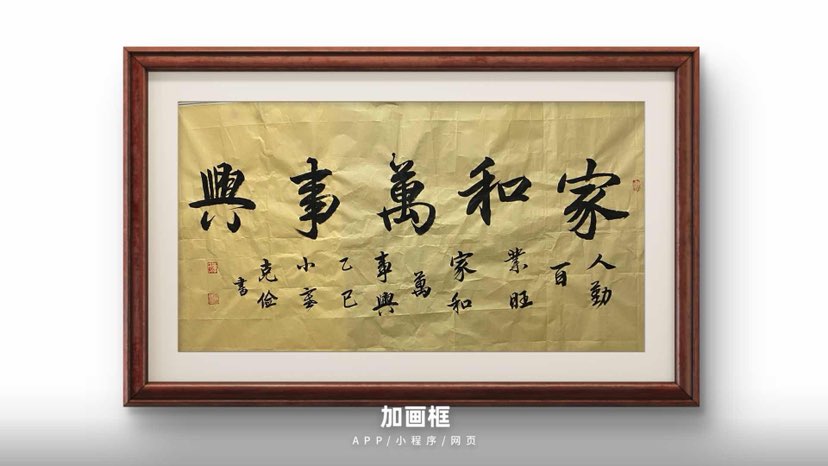 家和萬事興
人勤
百
業旺
家和
萬
事興
乙巳
小雪
克俭
書
加画框
APP/小程序/网页